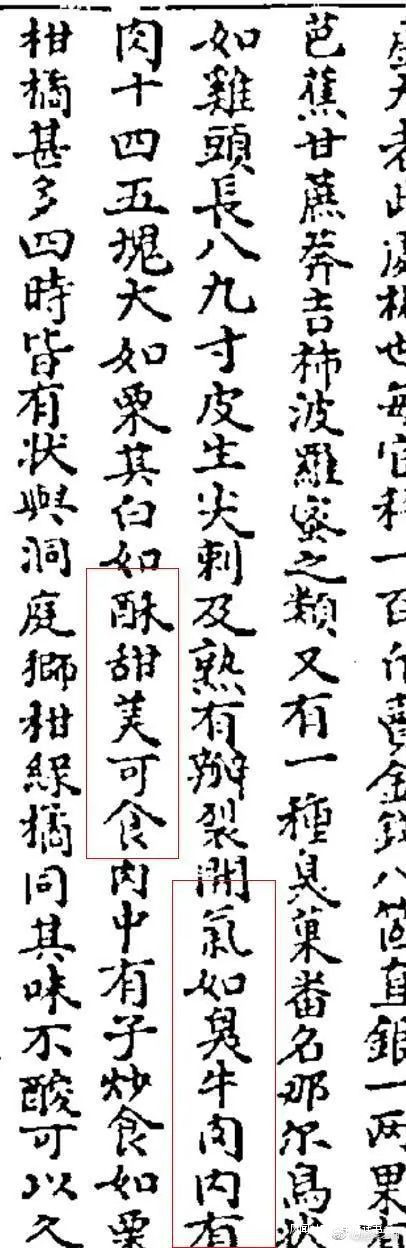 大者此處極也每官秤一百斤賣金錢八箇直銀一兩果有
芭蕉甘蔗莽吉柿波羅蜜之類又有一種臭菓番名那尔
如雞頭長八九寸皮生尖刺及熟有瓣裂開氣如臭牛肉内有
肉十四五塊大如栗其白如酥甜美可食肉中有子炒食如栗
柑橘甚多四時皆有状與洞庭獅柑緑橘同其味不酸可以久